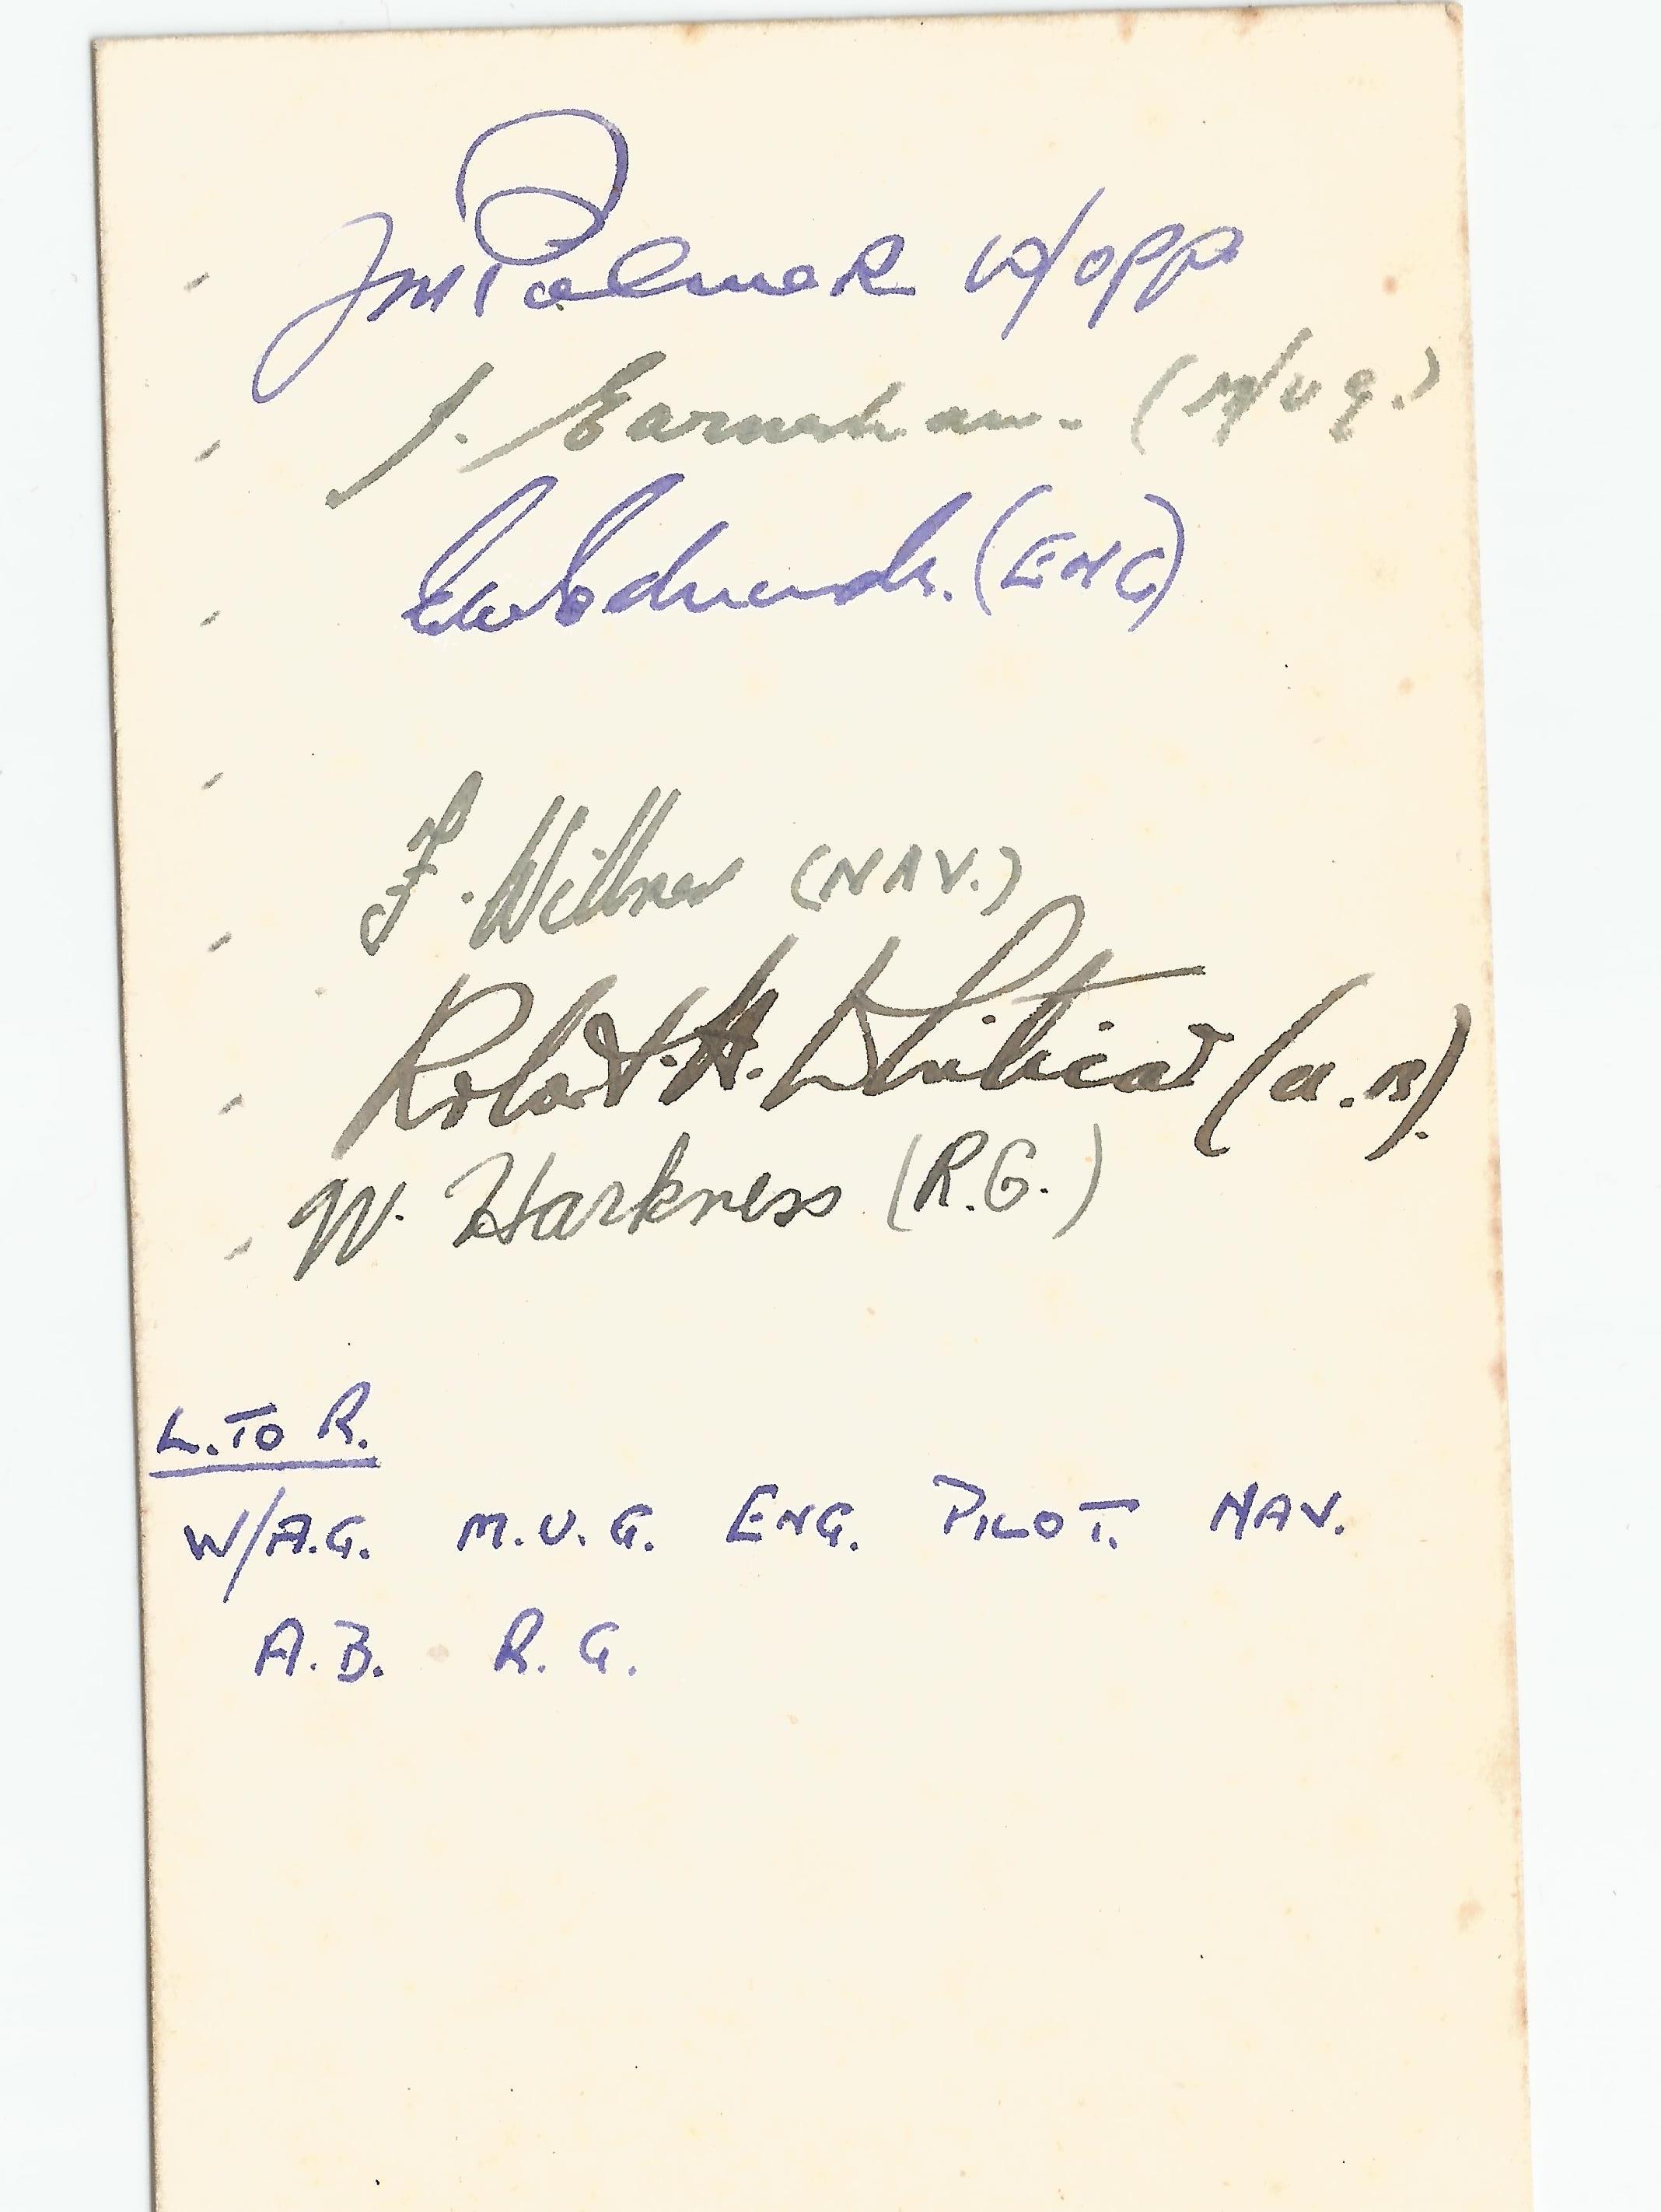 JM Palmer W/OPP
J. Earnshaw. (M/U G.)
Edmunds. (ENG)
F. Willner (NAV.)
Robert. H. (A.B).
W. Harkness (R.G.)
L. TO R.
W/A.G. M.U.G. ENG. PILOT. NAV.
A.B. R.G.